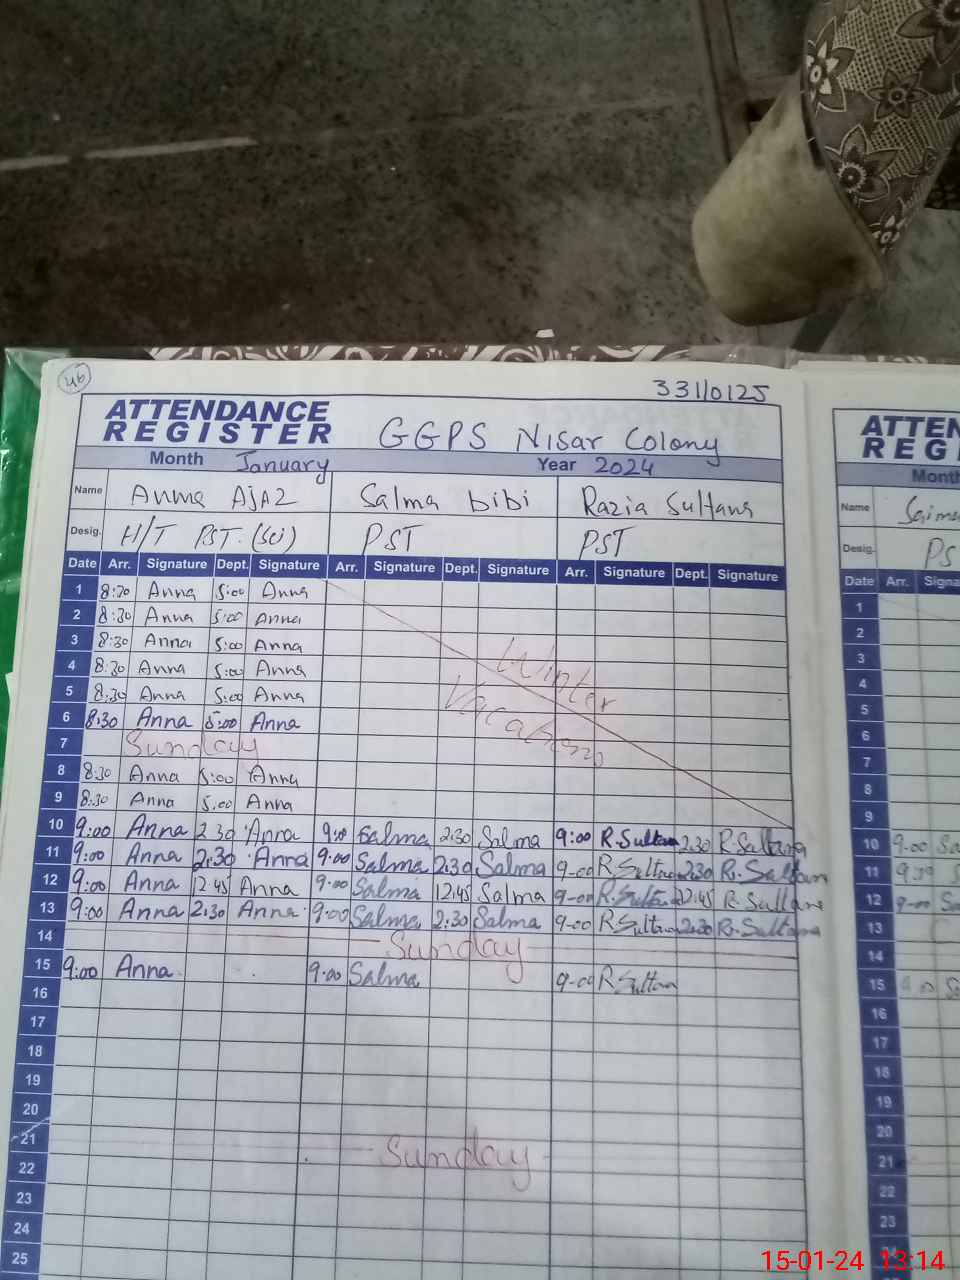 46
33110125
ATTENDANCE REGISTER GGPS Nisar Colony
Month January Year 2024
Name Anna Ajaz Salma bibi Razia Sultana
Desig. H/T PST. PST PST
Date Arr. Signature Dept. Signature Arr. Signature Dept. Signature Arr. Signature Dept. Signature
1 8:30 Anna 5:00 Anna
2 8:30 Anna 5:00 Anna
3 8:30 Anna 5:00 Anna
4 8:30 Anna 5:00 Anna
Winter
5 8:30 Anna 5:00 Anna
Vacations
6 8:30 Anna 5:00 Anna
7 Sunday
8 8:30 Anna 5:00 Anna
9 8:30 Anna 5:00 Anna
10 9:00 Anna 2 30 Anna 9:00 Salma 2:30 Salma 9:00 R.Sultan 2:30 R.Sultana
11 9:00 Anna 2:30 Anna 9:00 Salma 2:30 Salma 9-00 R.Sultan 2:30 R.Sultan
12 9:00 Anna 12:45 Anna 9:00 Salma 12:45 Salma 9-00 R.Sultan 12:45 R.Sultana
13 9:00 Anna 2:30 Anna 9:00 Salma 2:30 Salma 9-00 R.Sultan 2:30 R.Sultana
14 Sunday
15 9:00 Anna 9:00 Salma 9-00 R.Sultan
16
17
18
19
20
21 Sunday
22
23
24
25
ATTEN
REG
Month
Name Saima
Desig. PS
Date Arr. Signa
1
2
3
4
5
6
7
8
9
10 9:00 Sa
11
12 9-00 Sa
13
14
15
16
17
18
19
20
21
22
23
24
15-01-24 13:14